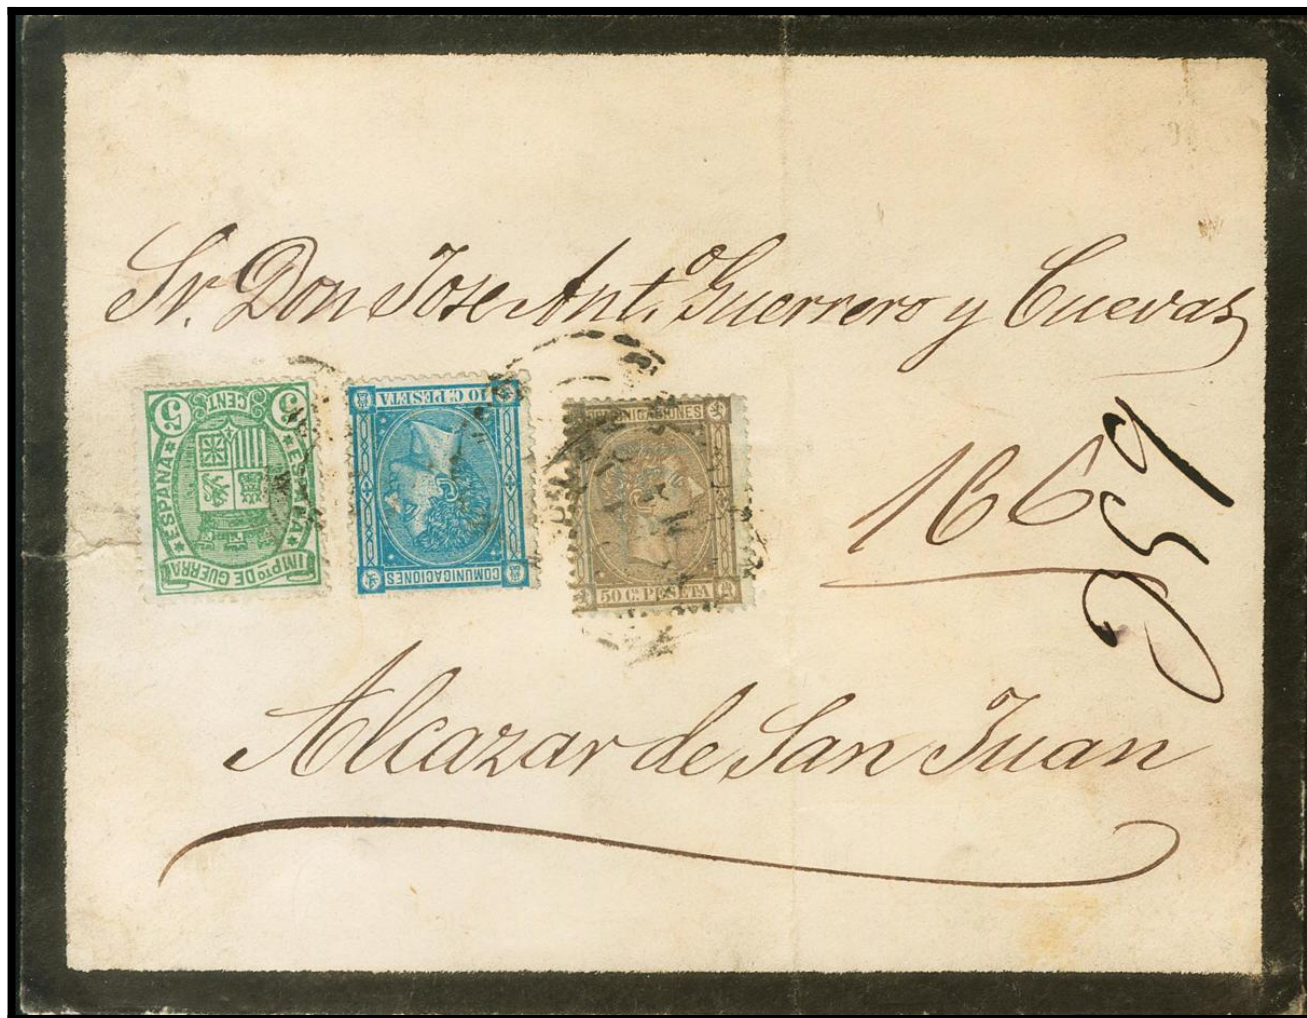 Sr. Don Jose Ant.º Guerrero y Cuevas
5 5
CENT
ESPAÑA ESPAÑA
IMPTO DE GUERRA
10 C. PESETA
COMUNICACIONES
COMUNICACIONES
50 CS PESETA
166
959
Alcazar de San Juan